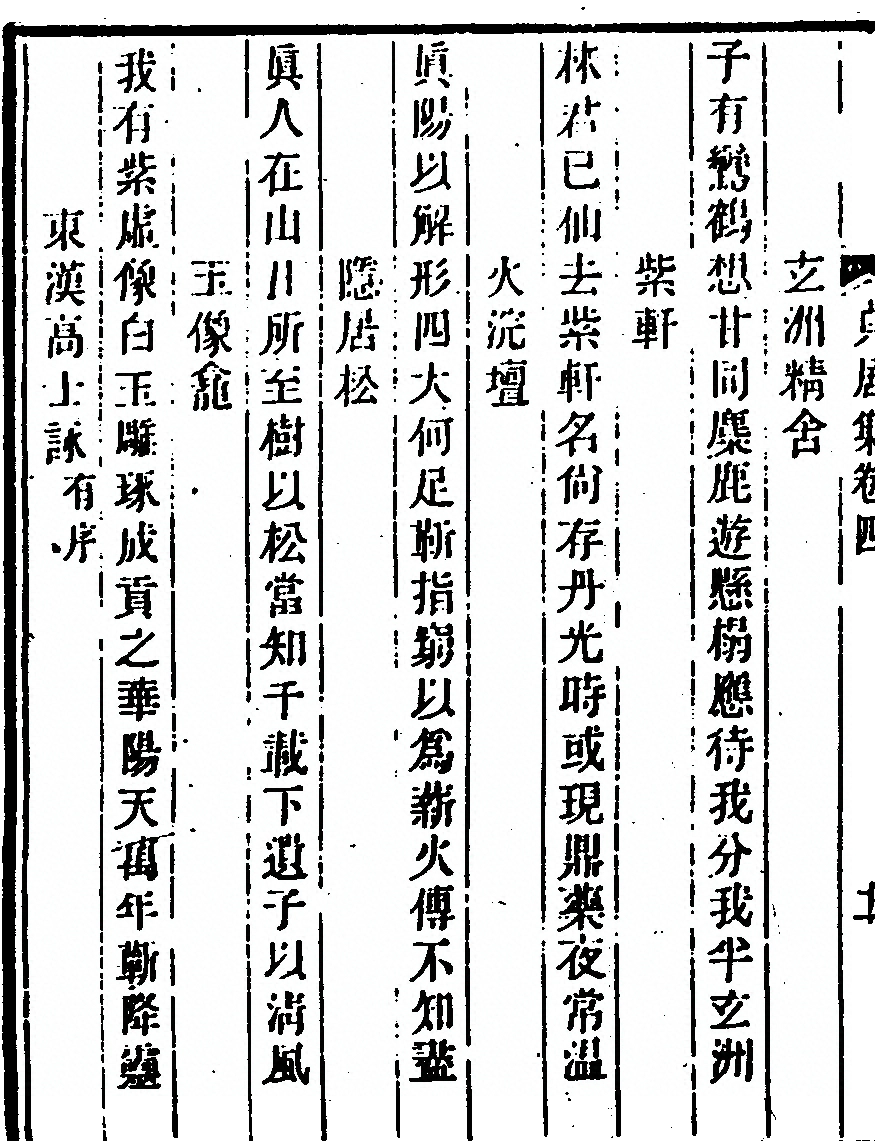 貞居集卷四
玄洲精舍
子有鸞鶴想甘同麋鹿遊懸榻應待我分我半玄洲
紫軒
林君已仙去紫軒名尙存丹光時或現鼎藥夜常温
火浣壇
眞陽以解形四大何足靳指窮以爲薪火傳不知盡
隱居松
眞人在山日所至樹以松當知千載下遺子以淸風
玉像龕
我有紫虛像白玉雕琢成貢之華陽天萬年蘄降靈
東漢高士詠有序